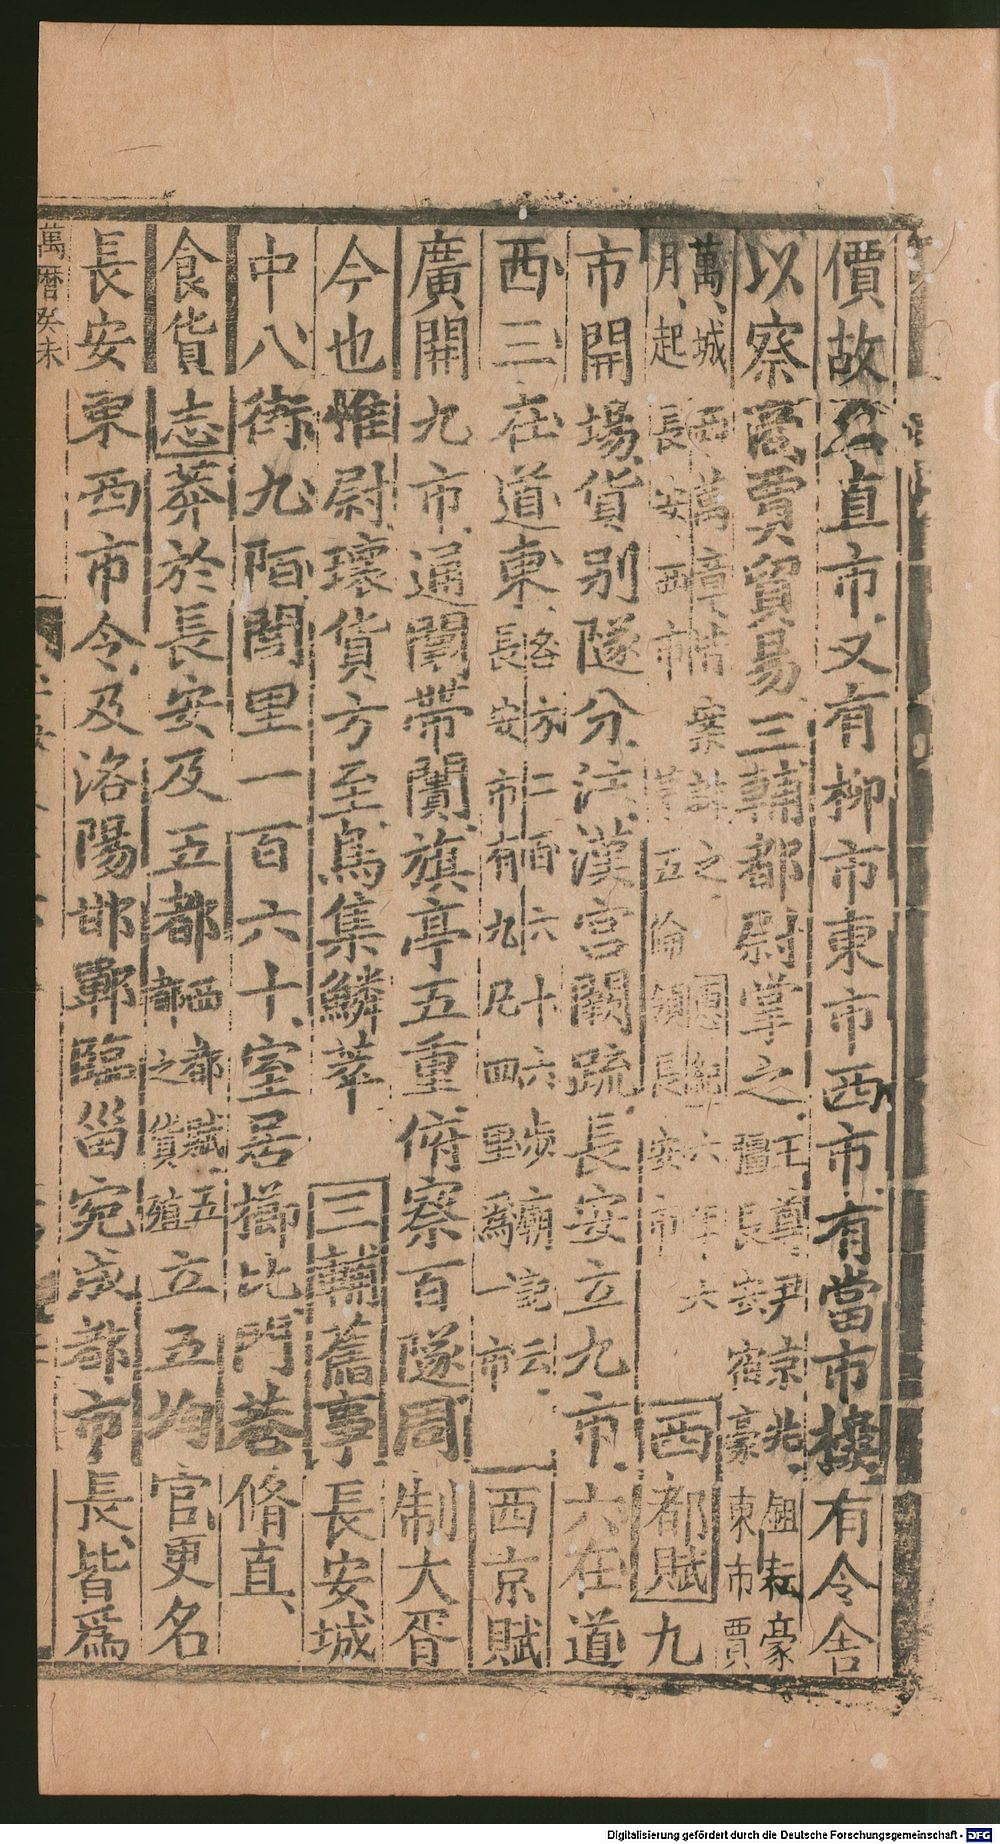 價故名直市又有柳市東市西市有當市樓有令舍
以察商賈貿易三輔都尉掌之王尊尹京兆鉏耘豪彊長安宿豪東市賈
萬城西萬章
月起長安西市第五倫領長安市西都賦九
市開場貨别隧分注漢宮闕疏長安立九市六在道
西三在道東各方二百六十六步廟記云長安市有九凡四里爲一市西京賦
廣開九市通闤帶闠旗亭五重俯察百隧周制大胥
今也惟尉瓌貨方至鳥集鱗萃三輔舊事長安城
中八街九陌閭里一百六十室居櫛比門巷脩直
食貨志莽於長安及五都立五均官更名西都賦五都之貨殖
長安東西市令及洛陽邯鄲臨甾宛成都市長皆爲
萬曆癸未
Digitalisierung gefördert durch die Deutsche Forschungsgemeinschaft - DFG